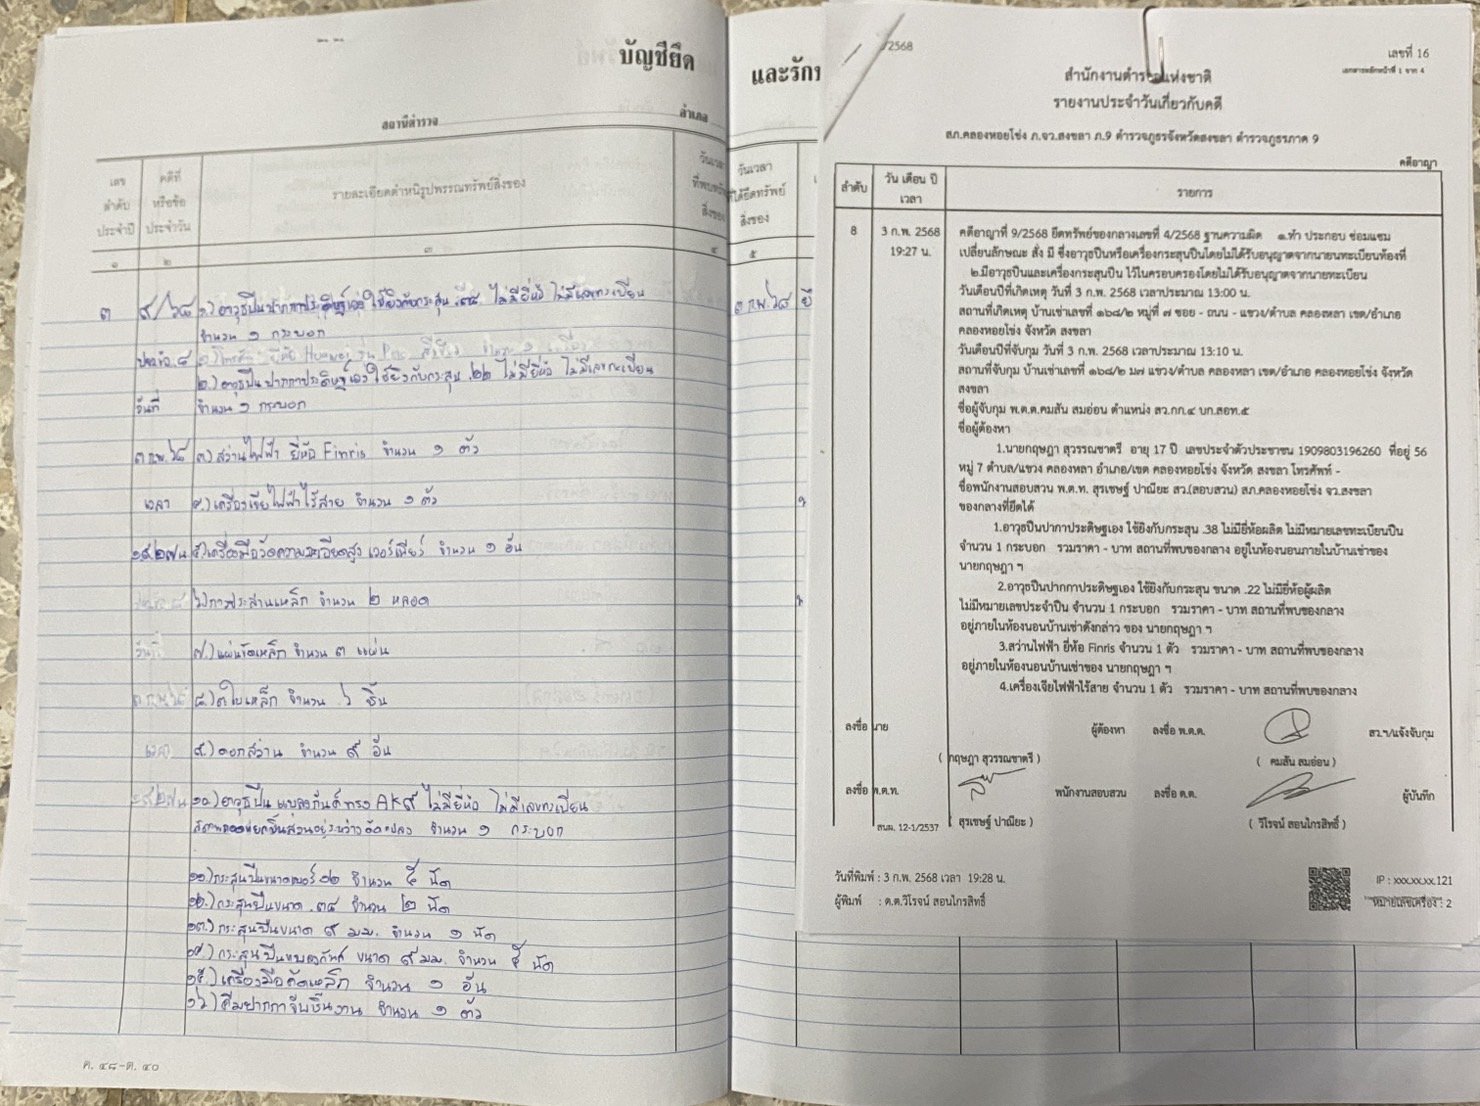 บัญชียึด
สถานีตำรวจ
อำเภอ
เลข
ลำดับ
ประจำปี
คดีที่
หรือข้อ
ประจำวัน
รายละเอียดตำหนิรูปพรรณทรัพย์สิ่งของ
วันเวลา
ที่พบทรัพย์
สิ่งของ
๑ ๒ ๓ ๔
๓ ๙/๖๘ ๑.) อาวุธปืนปากกาประดิษฐ์เอง ใช้ยิงกับกระสุน .๓๘ ไม่มียี่ห้อ ไม่มีเลขทะเบียน
จำนวน ๑ กระบอก
ปจว.ข้อ. ๘
๒.) อาวุธปืนปากกาประดิษฐ์เอง ใช้ยิงกับกระสุน .๒๒ ไม่มียี่ห้อ ไม่มีเลขทะเบียน
วันที่ จำนวน ๑ กระบอก
๓ ก.พ. ๖๘ ๓.) สว่านไฟฟ้า ยี่ห้อ Finris จำนวน ๑ ตัว
เวลา ๔.) เครื่องเจียไฟฟ้าไร้สาย จำนวน ๑ ตัว
๑๙.๒๗ น ๕.) เครื่องมือวัดความละเอียดสูง เวอร์เนียร์ จำนวน ๑ อัน
๖.) กาวประสานเหล็ก จำนวน ๒ หลอด
๗.) แผ่นขัดเหล็ก จำนวน ๓ แผ่น
๘.) ตะไบเหล็ก จำนวน ๖ ชิ้น
๙.) ดอกสว่าน จำนวน ๙ อัน
๑๐.) อาวุธปืน แบลงค์กันทรง AK ไม่มียี่ห้อ ไม่มีเลขทะเบียน
ชิ้นส่วนอยู่ระหว่างดัดแปลง จำนวน ๑ กระบอก
๑๑.) กระสุนปืนขนาดเบอร์ ๑๒ จำนวน ๕ นัด
๑๒.) กระสุนปืนขนาด .๓๘ จำนวน ๒ นัด
๑๓.) กระสุนปืนขนาด ๙ มม. จำนวน ๑ นัด
๑๔.) กระสุนปืนแบลงค์กันส์ ขนาด ๙ มม. จำนวน ๕ นัด
๑๕.) เครื่องมือตัดเหล็ก จำนวน ๑ อัน
๑๖.) คีมปากกาจับชิ้นงาน จำนวน ๑ ตัว
ค. ๔๘-ต. ๔๐
และรักษ
วันเวลา
ที่ได้ยึดทรัพย์
สิ่งของ
๕
๓ ก.พ. ๖๘ ยึ
/2568
เลขที่ 16
เอกสารหลักหน้าที่ 1 จาก 4
สำนักงานตำรวจแห่งชาติ
รายงานประจำวันเกี่ยวกับคดี
สภ.คลองหอยโข่ง ภ.จว.สงขลา ภ.9 ตำรวจภูธรจังหวัดสงขลา ตำรวจภูธรภาค 9
คดีอาญา
ลำดับ
วัน เดือน ปี
เวลา
รายการ
8 3 ก.พ. 2568 คดีอาญาที่ 9/2568 ยึดทรัพย์ของกลางเลขที่ 4/2568 ฐานความผิด ๑.ทำ ประกอบ ซ่อมแซม
19:27 น. เปลี่ยนลักษณะ สั่ง มี ซึ่งอาวุธปืนหรือเครื่องกระสุนปืนโดยไม่ได้รับอนุญาตจากนายนทะเบียนท้องที่
๒.มีอาวุธปืนและเครื่องกระสุนปืน ไว้ในครอบครองโดยไม่ได้รับอนุญาตจากนายทะเบียน
วันเดือนปีที่เกิดเหตุ วันที่ 3 ก.พ. 2568 เวลาประมาณ 13:00 น.
สถานที่เกิดเหตุ บ้านเช่าเลขที่ ๑๖๘/๒ หมู่ที่ ๗ ซอย - ถนน - แขวง/ตำบล คลองหลา เขต/อำเภอ
คลองหอยโข่ง จังหวัด สงขลา
วันเดือนปีที่จับกุม วันที่ 3 ก.พ. 2568 เวลาประมาณ 13:10 น.
สถานที่จับกุม บ้านเช่าเลขที่ ๑๖๘/๒ ม๗ แขวง/ตำบล คลองหลา เขต/อำเภอ คลองหอยโข่ง จังหวัด
สงขลา
ชื่อผู้จับกุม พ.ต.ต.คมสัน สมอ่อน ตำแหน่ง สว.กก.๔ บก.สอท.๕
ชื่อผู้ต้องหา
1.นายกฤษฎา สุวรรณชาตรี อายุ 17 ปี เลขประจำตัวประชาชน 1909803196260 ที่อยู่ 56
หมู่ 7 ตำบล/แขวง คลองหลา อำเภอ/เขต คลองหอยโข่ง จังหวัด สงขลา โทรศัพท์ -
ชื่อพนักงานสอบสวน พ.ต.ท. สุรเชษฐ์ ปาณียะ สว.(สอบสวน) สภ.คลองหอยโข่ง จว.สงขลา
ของกลางที่ยึดได้
1.อาวุธปืนปากาประดิษฐเอง ใช้ยิงกับกระสุน .38 ไม่มียี่ห้อผลิต ไม่มีหมายเลขทะเบียนปืน
จำนวน 1 กระบอก รวมราคา - บาท สถานที่พบของกลาง อยู่ในห้องนอนภายในบ้านเช่าของ
นายกฤษฎา ฯ
2.อาวุธปืนปากกาประดิษฐเอง ใช้ยิงกับกระสุน ขนาด .22 ไม่มียี่ห้อผู้ผลิต
ไม่มีหมายเลขประจำปืน จำนวน 1 กระบอก รวมราคา - บาท สถานที่พบของกลาง
อยู่ภายในห้องนอนบ้านเช่าดังกล่าว ของ นายกฤษฎา ฯ
3.สว่านไฟฟ้า ยี่ห้อ Finris จำนวน 1 ตัว รวมราคา - บาท สถานที่พบของกลาง
อยู่ภายในห้องนอนบ้านเช่าของ นายกฤษฎา ฯ
4.เครื่องเจียไฟฟ้าไร้สาย จำนวน 1 ตัว รวมราคา - บาท สถานที่พบของกลาง
ลงชื่อ นาย ผู้ต้องหา ลงชื่อ พ.ต.ต. สว.ฯ/แจ้งจับกุม
( กฤษฎา สุวรรณชาตรี ) ( คมสัน สมอ่อน )
ลงชื่อ พ.ต.ท. พนักงานสอบสวน ลงชื่อ ด.ต. ผู้บันทึก
สนผ. 12-1/2537 ( สุรเชษฐ์ ปาณียะ ) ( วิโรจน์ สอนไกรสิทธิ์ )
วันที่พิมพ์ : 3 ก.พ. 2568 เวลา 19:28 น. IP : xxx.xx.xx.121
ผู้พิมพ์ : ด.ต.วิโรจน์ สอนไกรสิทธิ์ หมายเลขเครื่อง : 2